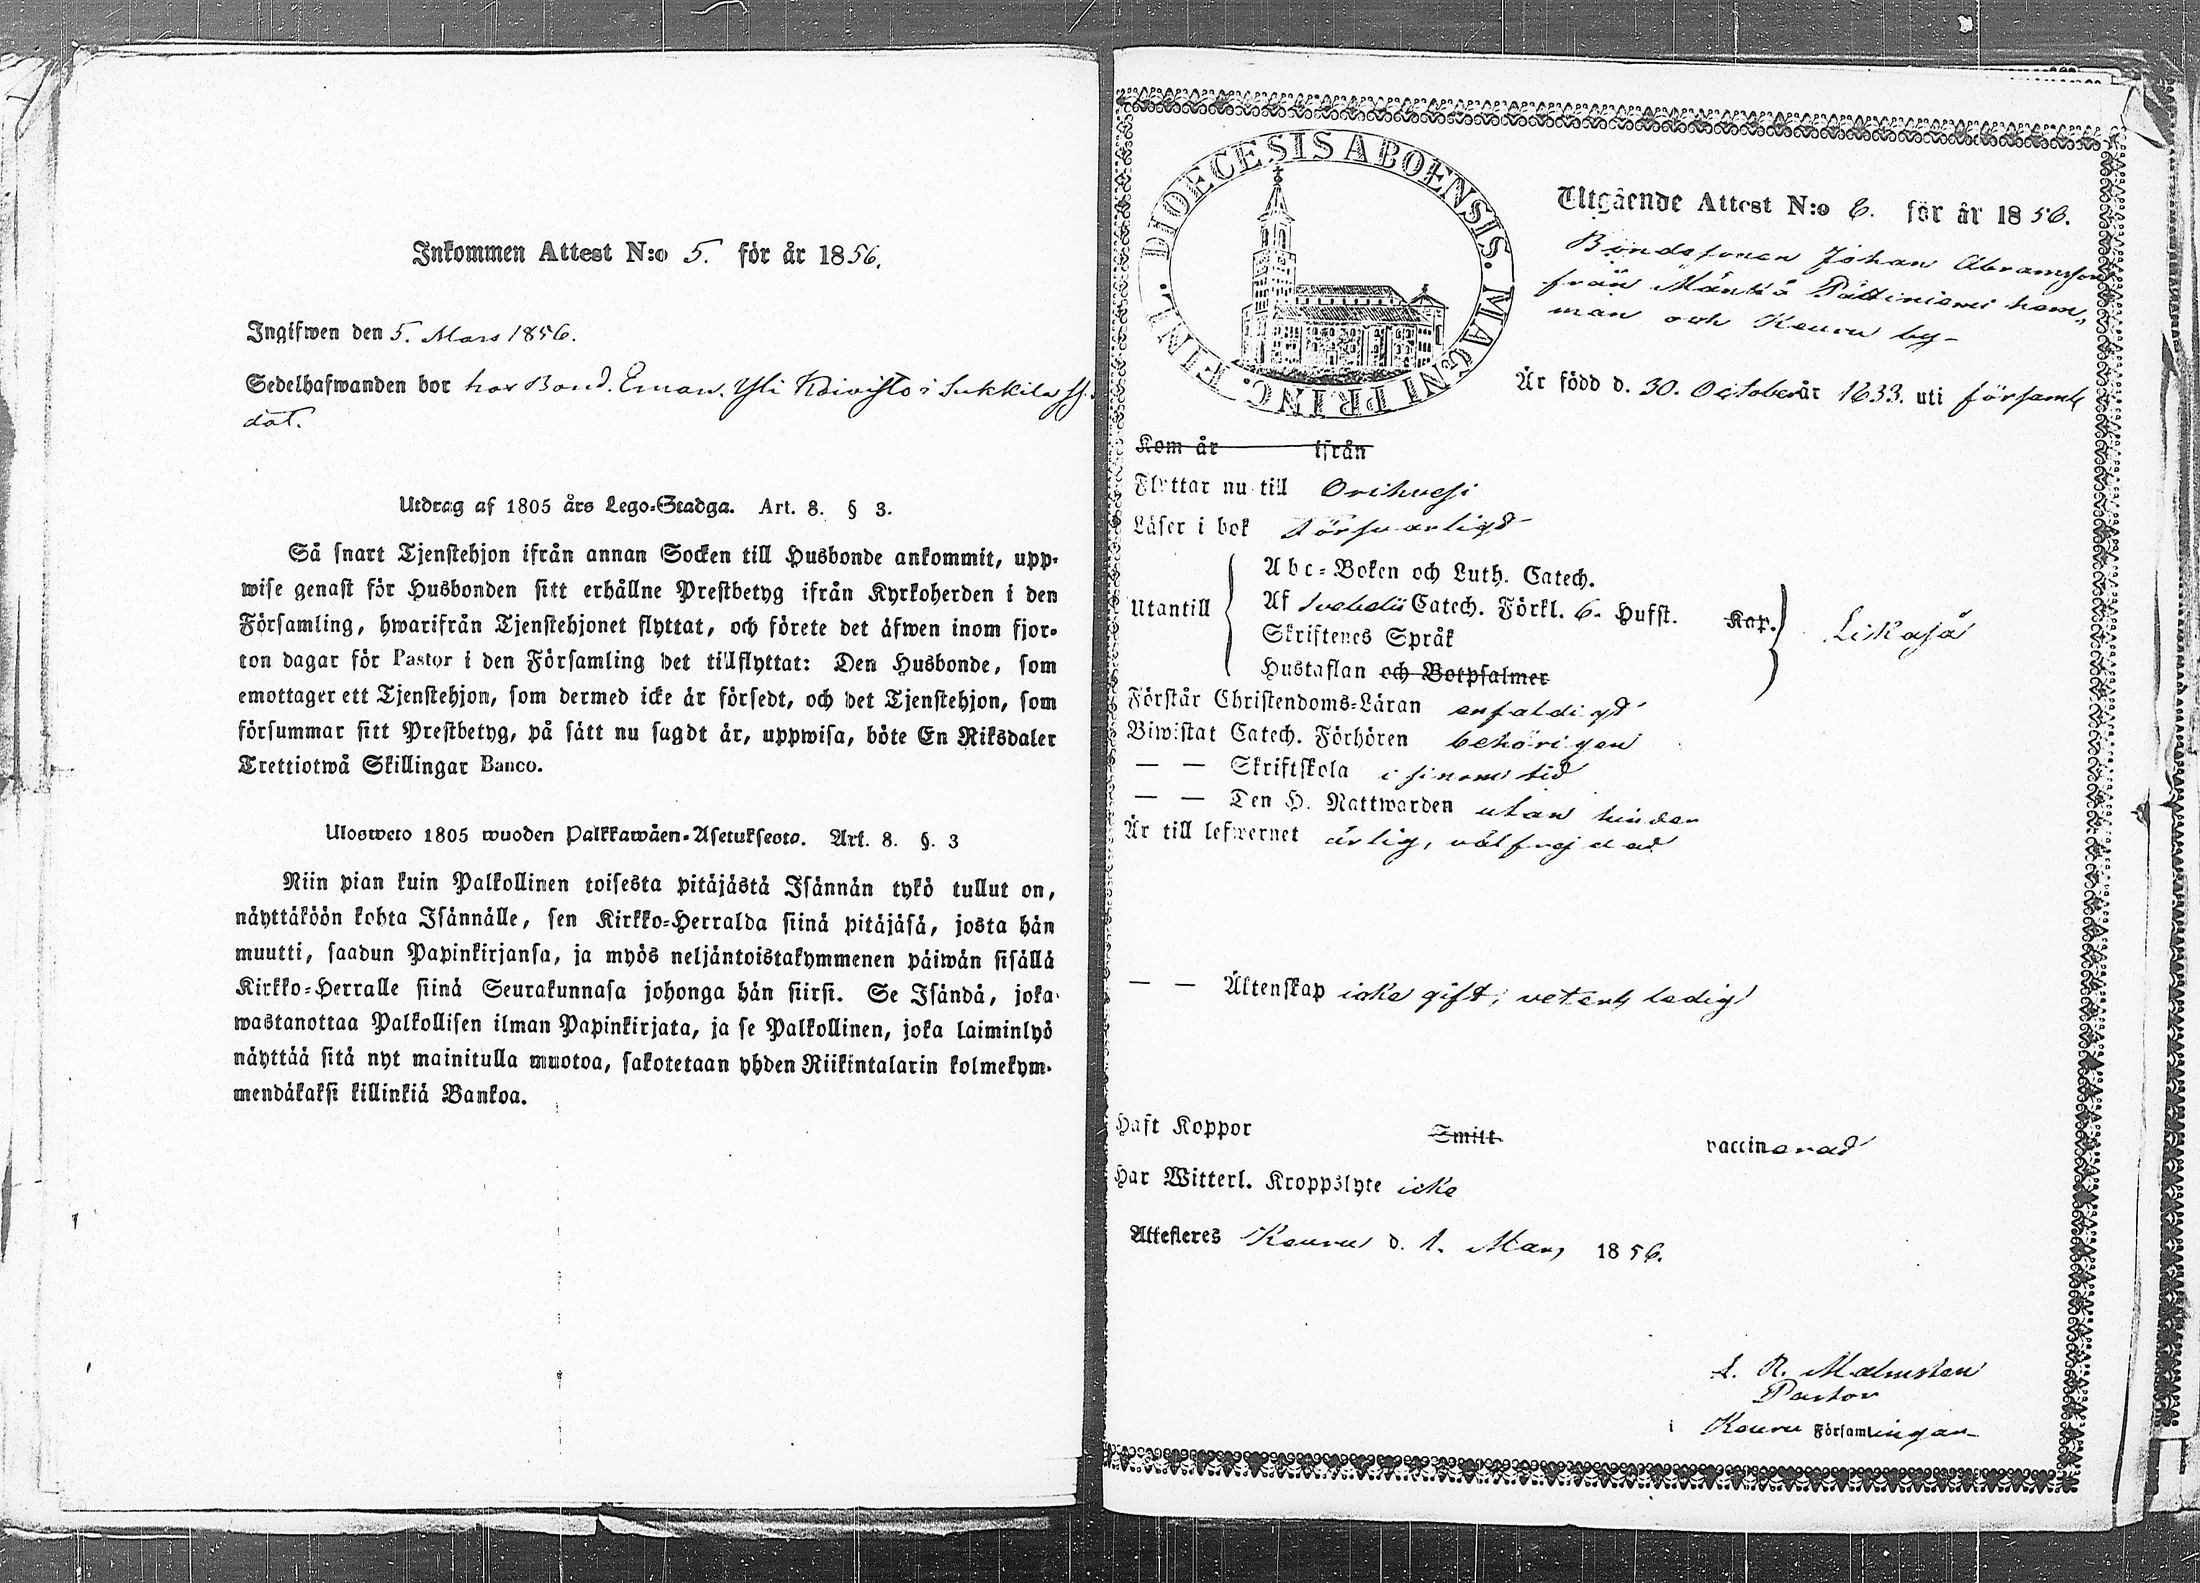 Inkommen Attest N:o 5. för år 1856.
Ingifwen den 5. Mars 1856.
Sedelhafwanden bor hos Bond. Eman. Yli Koivisto i Sukkila
dat.
Utdrag af 1805 års Lego-Stadga. Art. 8. § 3.
Så snart Tjenstehjon ifrån annan Socken till Husbonde ankommit, upp-
wise genast för Husbonden sitt erhållne Prestbetyg ifrån Kyrkoherden i den
Församling, hwarifrån Tjenstehjonet flyttat, och förete det äfwen inom fjor-
ton dagar för Pastor i den Församling det tillflyttat: Den Husbonde, som
emottager ett Tjenstehjon, som dermed icke är försedt, och det Tjenstehjon, som
försummar sitt Prestbetyg, på sätt nu sagdt är, uppwisa, böte En Riksdaler
Trettiotwå Skillingar Banco.
Ulosweto 1805 wuoden Palkkawäen-Asetuksesta. Art. 8. §. 3
Niin pian kuin Palkollinen toisesta pitäjästä Isännän tykö tullut on,
näyttäköön kohta Isännälle, sen Kirkko-Herralda siinä pitäjäsä, josta hän
muutti, saadun Papinkirjansa, ja myös neljäntoistakymmenen päiwän sisällä
Kirkko-Herralle siinä Seurakunnasa johonga hän siirsi. Se Isändä, joka
wastanottaa Palkollisen ilman Papinkirjata, ja se Palkollinen, joka laiminlyö
näyttää sitä nyt mainitulla muotoa, sakotetaan yhden Riikintalarin kolmekym-
mendäkaksi killinkiä Bankoa.
DIOECESIS ABOENSIS. MAGNI PRINC. FINL.
Utgående Attest N:o 6. för år 1856.
Bondesonen Johan Abramsson
från Mänttä Pättiniemi hem„
man och Keuru by
Är född d. 30. October år 1833. uti församl
Kom år ifrån
Flyttar nu till Orihvesi
Läser i bok försvarligt
Utantill
Abc-Boken och Luth. Catech.
Af Svebelii Catech. Förkl. 6. Hufst. Kap.
Skriftenes Språk
Hustaflan och Botpsalmer
Likaså
Förstår Christendoms-Läran enfaldigt
Biwistat Catech. Förhören behörigen
— — Skriftskola i sinom tid
— — Den H. Nattwarden utan hinder
Är till lefwernet ärlig, välfrejdad
— — Äktenskap icke gift, veterl. ledig
Haft Koppor Smitt vaccinerad
Har Witterl. Kroppslyte icke
Attesteres Keuru d. 1. Mars 1856.
A. R. Malmsten
Pastor
i Keuru Församlingar